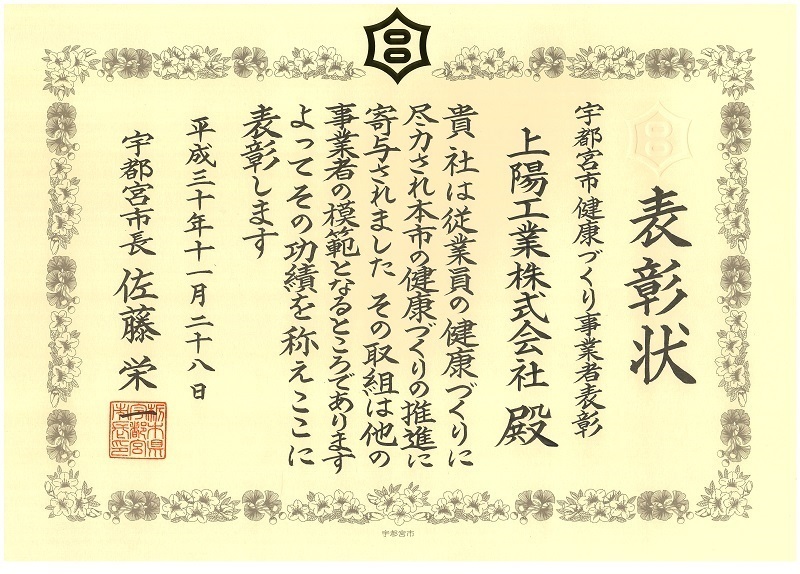 表彰状
宇都宮市健康づくり事業者表彰
上陽工業株式会社 殿
貴社は従業員の健康づくりに
尽力され本市の健康づくりの推進に
寄与されました その取組は他の
事業者の模範となるところであります
よってその功績を称えここに
表彰します
平成三十年十一月二十八日
宇都宮市長 佐藤栄一
栃木県
宇都宮
市長印
宇都宮市